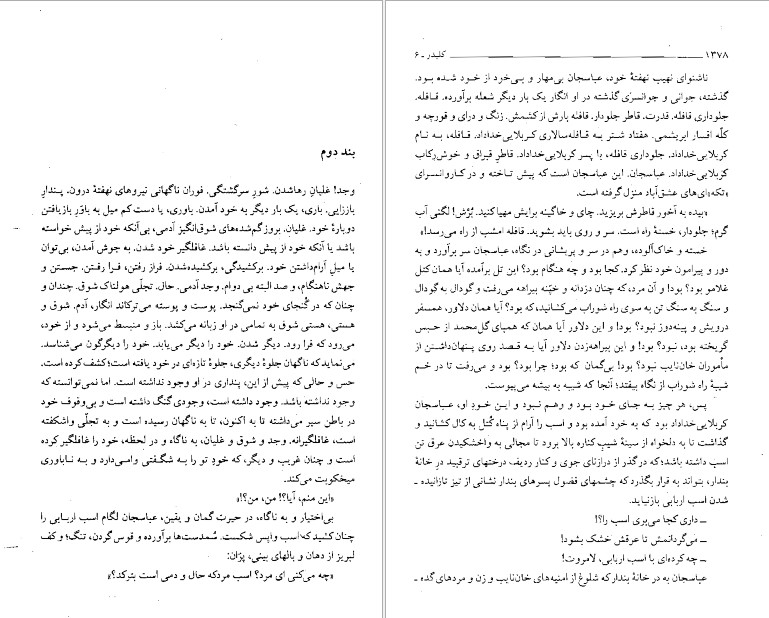 ۱۳۷۸ کلیدر ـ ۶
ناشنوای نهیب نهفتهٔ خود، عباسجان بی‌مهار و بی‌خرد از خود شده بود.
گذشته، جوانی و جوانسری گذشته در او انگار یک بار دیگر شعله برآورده. قافله.
جلوداری قافله. قدرت. قاطر جلودار. قافله بارش از کشمش. زنگ و درای و قورچه و
کلّه افسار ابریشمی. هفتاد شتر به قافله‌سالاری کربلایی‌خداداد. قافله، به نام
کربلایی‌خداداد. جلوداری قافله، با پسر کربلایی‌خداداد. قاطرِ قبراق و خوش‌رکاب
کربلایی‌خداداد. عباسجان. این عباسجان است که پیش تاخته و در کاروانسرای
«تکه»‌ای‌های عشق‌آباد منزل گرفته است.
«بیده به آخور قاطرش بریزید. چای و خاگینه برایش مهیا کنید. بُرّش! لگنی آب
گرم؛ جلودار، خستهٔ راه است. سر و روی باید بشوید. قافله امشب از راه می‌رسد!»
خسته و خاک‌آلوده، وهم در سر و پریشانی در نگاه، عباسجان سر برآورد و به
دور و پیرامون خود نظر کرد. کجا بود و چه هنگام بود؟ این تل برآمده آیا همان کتل
غلامو بود؟ بود! و آن مرد، که چنان دزدانه و خپنه بیراهه می‌رفت و گودال به گودال
و سنگ به سنگ تن به سوی راه شوراب می‌کشانید، که بود؟ آیا همان دلاور، همسفر
درویش و پینه‌دوز نبود؟ بود! و این دلاور آیا همان که همپای گل‌محمد از حبس
گریخته بود، نبود؟ بود! و این بیراهه‌زدن دلاور آیا به قصد روی پنهان‌داشتن از
مأموران خان‌نایب نبود؟ بود! بی‌گمان که بود؛ چرا بود؟ بود و می‌رفت تا در خم
شیبهٔ راه شوراب از نگاه بیفتد؛ آنجا که شیبه به بیشه می‌پیوست.
پس، هر چیز به جای خود بود و وهم نبود و این خودِ او، عباسجان
کربلایی‌خداداد بود که به خود آمده بود و اسب را آرام از پناه کُتل به کال کشانید و
گذاشت تا به دلخواه از سینهٔ شیبِ کناره بالا برود تا مجالی به واخشکیدن عرق تن
اسب داشته باشد؛ که در گذر از درازنای جوی و کنار ردیف درختهای ترقبید در خانهٔ
بندار، بتواند به قرار بگذرد که چشمهای فضول پسرهای بندار نشانی از تیز تازانیده ـ
شدن اسب اربابی بازنیابد.
ـ داری کجا می‌بری اسب را؟!
ـ می‌گردانمش تا عرقش خشک بشود!
ـ چه کرده‌ای با اسب اربابی، لامروت!
عباسجان به در خانهٔ بندار که شلوغ از امنیه‌های خان‌نایب و زن و مردهای گده ـ
بند دوم
وجد! غلیان رهاشدن. شورِ سرگشتگی. فوران ناگهانی نیروهای نهفتهٔ درون. پندارِ
باززایی. باری، یک بار دیگر به خود آمدن. باوری، یا دست کم میل به باورِ بازیافتن
دوبارهٔ خود. غلیان. بروز گم‌شده‌های شوق‌انگیز آدمی، بی‌آنکه خود از پیش خواسته
باشد یا آنکه خود از پیش دانسته باشد. غافلگیر خود شدن. به جوش آمدن، بی‌توان
یا میلِ آرام‌داشتن خود. برکشیدگی، برکشیده‌شدن. فراز رفتن، فرا رفتن. جستن و
جهش ناهنگام، و صد البته بی دوام. وجد آدمی. حال. تجلّی هولناک شوق. چندان و
چنان که در گُنجای خود نمی‌گنجد. پوست و پوسته می‌ترکاند انگار، آدم. شوق و
هستی، هستی شوق به تمامی در او زبانه می‌کشد. باز و منبسط می‌شود و از خود،
می‌رود که فرا رود. دیگر شدن. خود را دیگر می‌یابد. خود را دیگرگون می‌شناسد.
می‌نماید که ناگهان جلوهٔ دیگری، جلوهٔ تازه‌ای در خود یافته است؛ کشف کرده است.
حس و حالی که پیش از این، پنداری در او وجود نداشته است. اما نمی‌توانسته که
وجود نداشته باشد. وجود داشته است، وجودی گنگ داشته است و بی‌وقوف خود
در باطن سیر می‌داشته تا به اکنون، تا به ناگهان رسیده است و به تجلّی واشکفته
است، غافلگیرانه. وجد و شوق و غلیان، به ناگاه و در لحظه، خود را غافلگیر کرده
است و چنان غریب و دیگر، که خودِ تو را به شگفتی وامی‌دارد و به ناباوری
میخکوبت می‌کند.
«این منم، آیا؟! من، من؟!»
بی‌اختیار و به ناگاه، در حیرتِ گمان و یقین، عباسجان لگام اسب اربابی را
چنان کشید که اسب واپس شکست. سُمدست‌ها برآورده و قوس گردن، تنگ؛ و کف
لبریز از دهان و بالهای بینی، پرّان:
«چه می‌کنی ای مرد؟ اسب مردکه حال و دمی است بترکد؟»